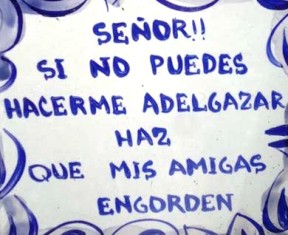 SEÑOR!!
SI NO PUEDES
HACERME ADELGAZAR
HAZ
QUE MIS AMIGAS
ENGORDEN